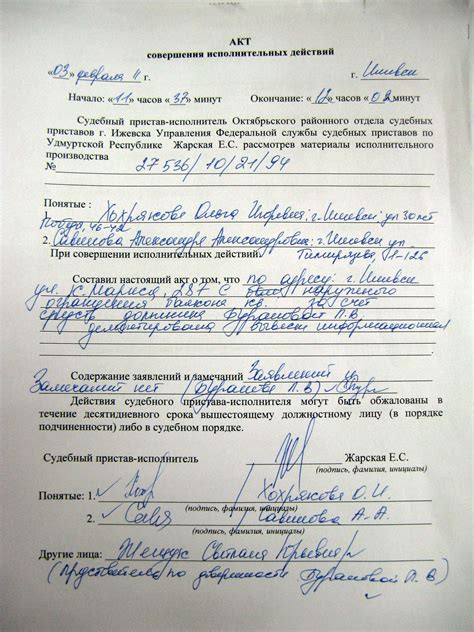 АКТ
совершения исполнительных действий
«03» февраля 11 г. г. Ижевск
Начало: «11» часов «37» минут Окончание: «12» часов «02» минут
Судебный пристав-исполнитель Октябрьского районного отдела судебных
приставов г. Ижевска Управления Федеральной службы судебных приставов по
Удмуртской Республике Жарская Е.С. рассмотрев материалы исполнительного
производства
№ 27536/10/21/94
Понятые :
1. Хохрякова Ольга Игоревна; г. Ижевск; ул 30 лет
Победы, 46-42
2. Савинова Александра Александровна; г. Ижевск ул
При совершении исполнительных действий: Тимирязева
Составил настоящий акт о том, что по адресу: г. Ижевск
ул. К. Маркса, 287 с наружного
ограждения балкона кв. за счет
средств должника Бурановой Л.В.
демонтирована вывеска информационная
Содержание заявлений и замечаний Заявлений и
Замечаний нет (Буранова Л. В.)
Действия судебного пристава-исполнителя могут быть обжалованы в
течение десятидневного срока вышестоящему должностному лицу (в порядке
подчиненности) либо в судебном порядке.
Судебный пристав-исполнитель Жарская Е.С.
(подпись, фамилия, инициалы)
Понятые: 1. Хохрякова О.И.
(подпись, фамилия, инициалы)
2. Савинова А.А.
(подпись, фамилия, инициалы)
Другие лица: Светлана Юрьевна
(Представитель по доверенности Бурановой Л. В)